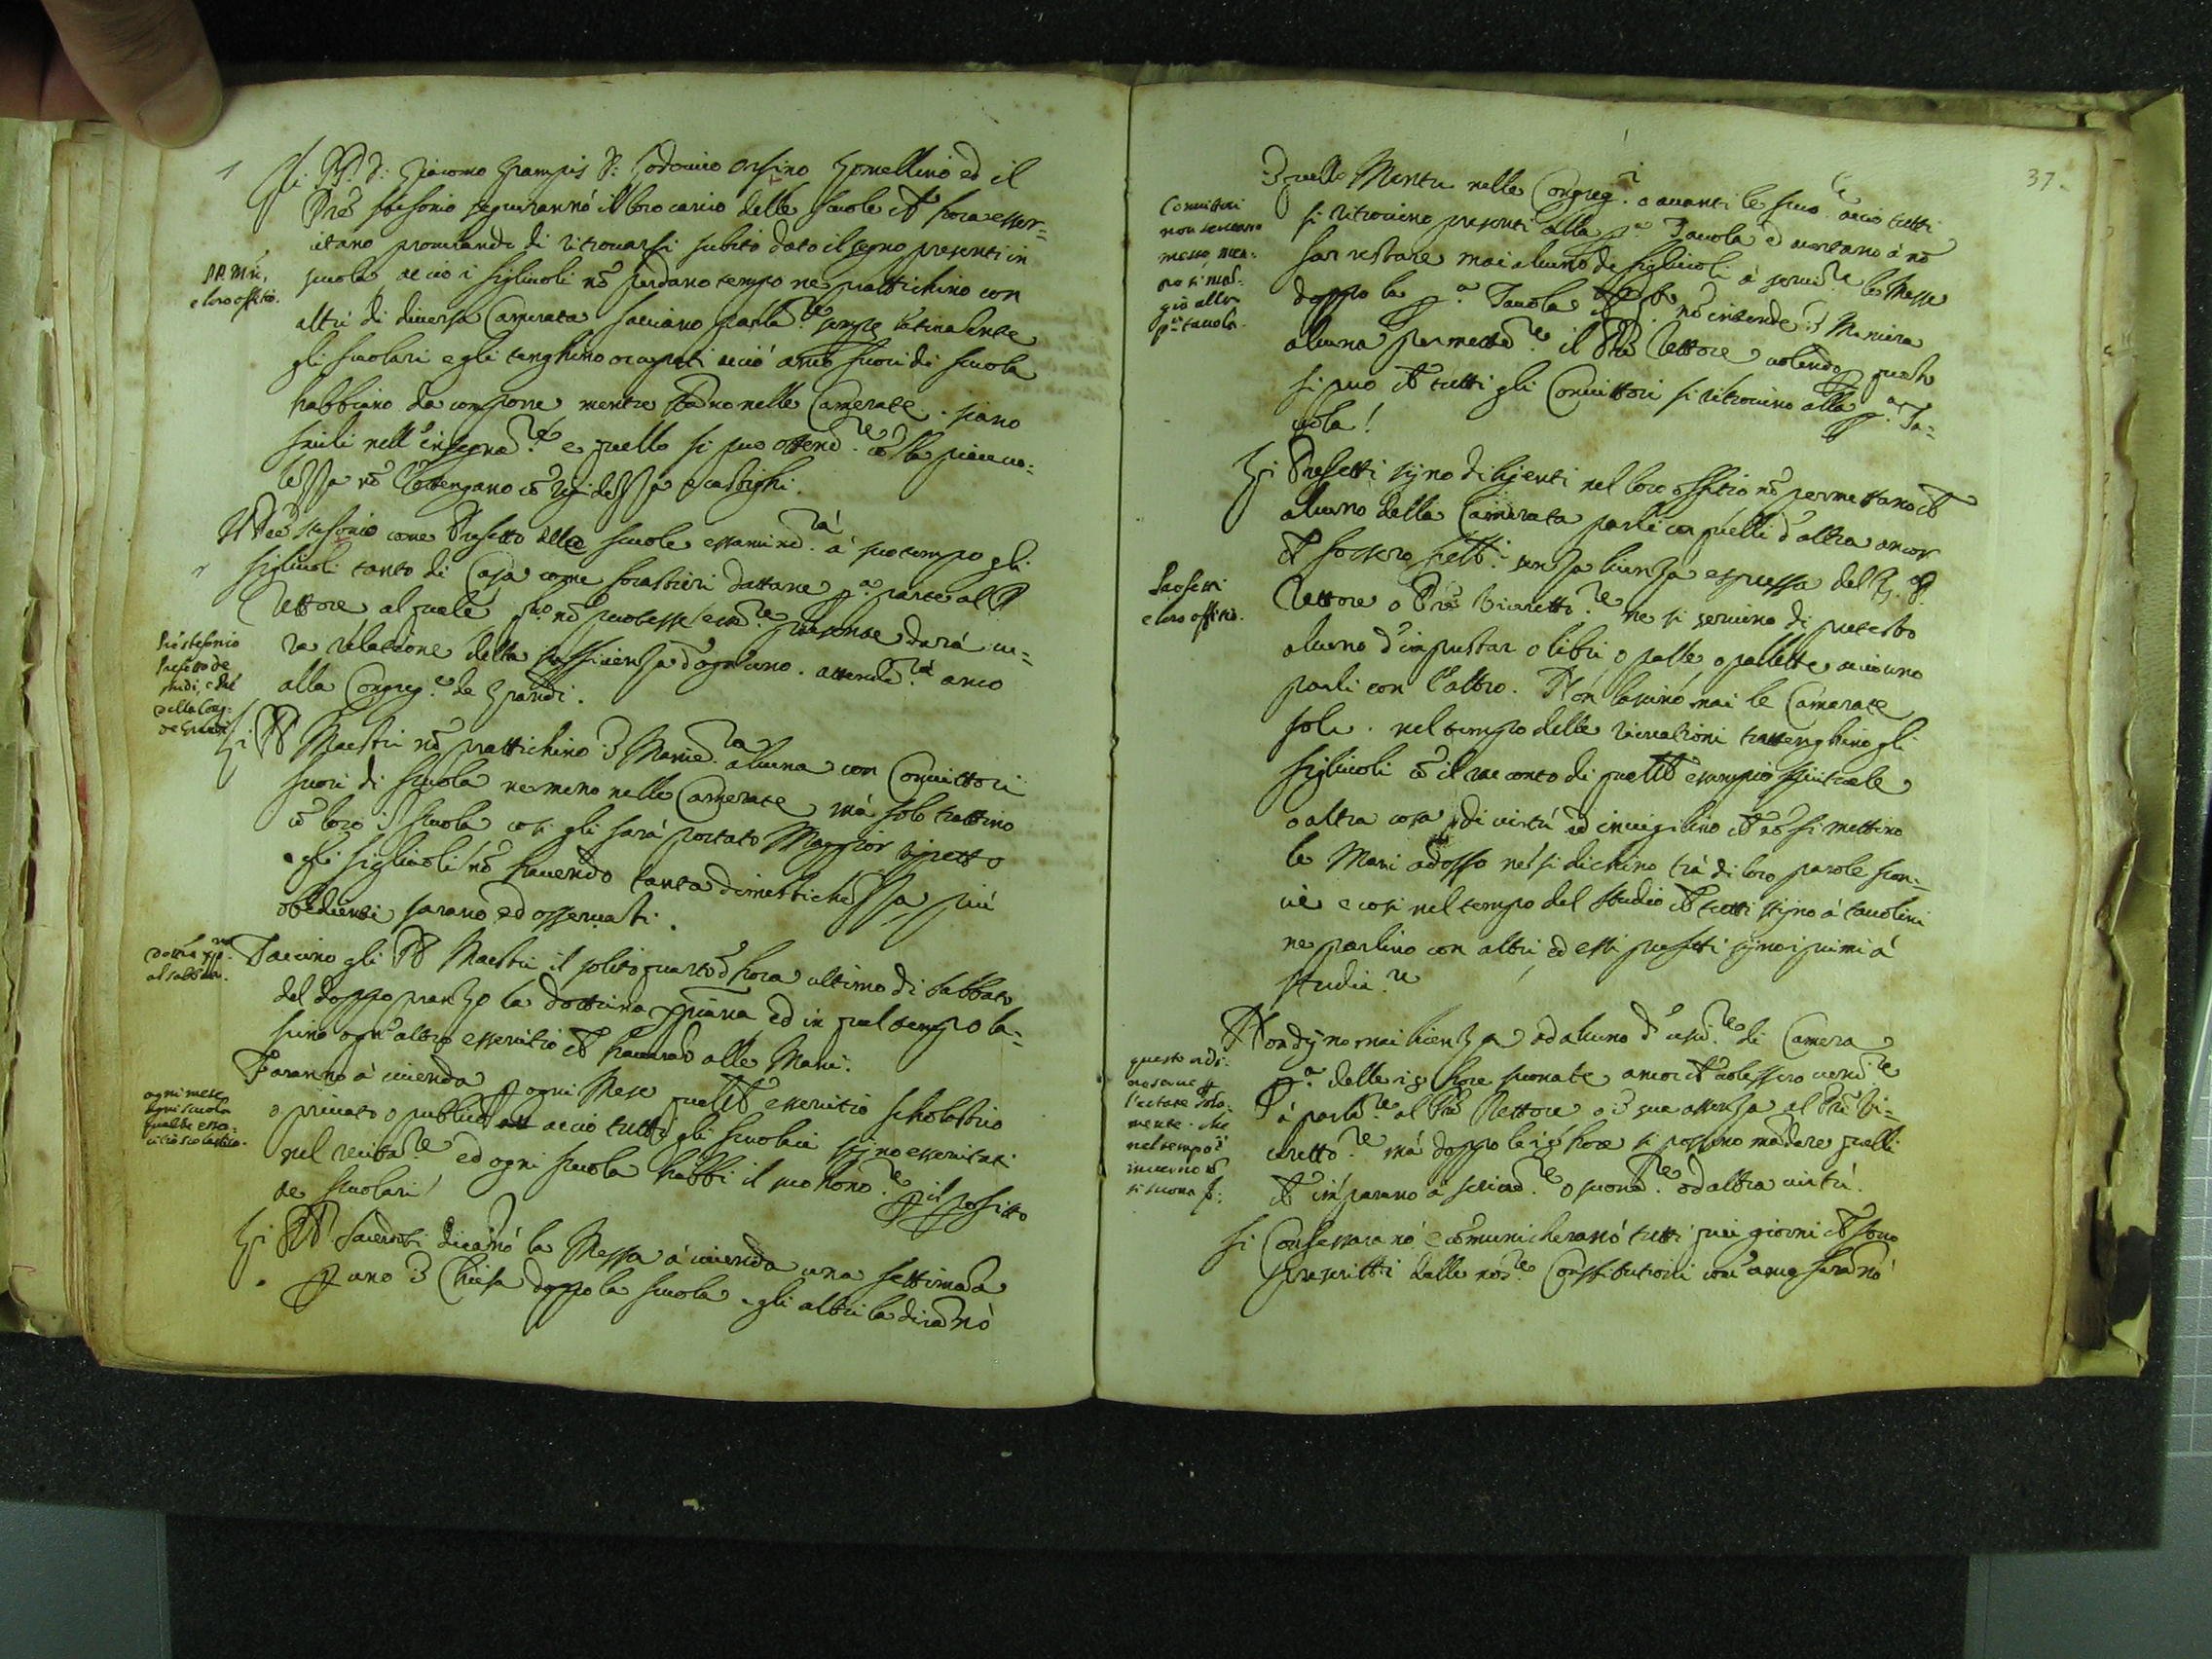 1 Gli PP. D: Giacomo Grampis P: Lodovico Orsino Gomellino ed il
Pre stesonio seguiranno il loro carico delle scuole ch hora esser=
citano procurando di ritrovarsi subito dato il segno presenti in
scuola, accio i figliuoli nõ perdano tempo ne prattichino con
altri di diversa Camerata facciano parla.re sempre latinamente
gli scuolari e gli tenghino occupati acciò anco fuori di scuola
habbiano da comporre mentre stãno nelle Camerate. siano
facili nell'insegna.re e quello si puo ottene.re cõ la piacevo=
lezza nõ l'ottengano cõ rigidezza e castighi.
PP. Mri.
e loro offitio.
Il Pre stesonio come Prefetto delle scuole essamine.rà à suo tempo gli
figliuoli tanto di Casa come forastieri dattane p.a parte al P.
Rettore al quale se nõ puotesse esse.re presente darà ve=
ra relatione della sufficienza d'ogn'uno. attende.rà anco
alla Congreg.e de Grandi.
Pre stesonio
Prefetto de
studi, e del
della Cong.
de Grandi
Gli PP. Maestri nõ prattichino ĩ Manie.ra alcuna con Convittori
fuori di scuola ne meno nelle Camerate, mà solo trattino
cõ loro ĩ scuola cosi gli sarà portato Maggior rispetto
e gli figliuoli nõ havendo tanta dimestichezza, più
obedienti sarano ed osservati.
Facino gli PP. Maestri il solito quarto d'hora ultimo di sabbato
del doppo pranzo la dottrina xpiana, ed in quel tempo la=
scino ogn'altro essercitio ch haverano alle Mani.
dottrina xpna
al sabbato.
Faranno à vicenda p ogni Mese qualch essercitio scholastico
o privato o publico acciò tutti gli scuolari sijno essercitati
nel recita.re ed ogni scuola habbi il suo hono.re p il profitto
de scuolari
ogni mese
ogni scuola
qualche esser=
citio scolastico.
Gli PP. Sacerdoti dicano la Messa à vicenda una settimana
p uno ĩ Chiesa doppo la scuola e gli altri la dirãno
37.
ĩ quello Mentre nelle Congreg.i o avanti le scuo.le acciò tutti
si ritrovino presenti alla p.a Tavola ed avertano à nõ
far restare mai alcuno de figliuoli à servi.re le Messe
doppo la p.a Tavola nõ intende ĩ Maniera
alcuna permette.re il Pre Rettore volendo quanto
si può ch tutti gli Convittori si ritrovino alla p.a Ta=
vola!
Convittori
non servano
messe men=
tre si man=
gia alla
p.a tavola.
Gli Prefetti sijno diligenti nel loro offitio nõ permettano ch
alcuno della Camerata parli con quelli d'altra ancor
ch fossero fratelli senza licenza espressa del P.
Rettore o Pre Viceretto.re ne si servino di pretesto
alcuno d'imprestar o libri o palle o pallette accio uno
parli con l'altro. Non lascino mai le Camerate
sole. nel tempo delle ricreationi trattenghino gli
figliuoli cõ il racconto di qualch essempio spirituale
o altra cosa di virtù ed invigilino ch nõ si mettino
le Mani adosso ne si dichino trà di loro parole scon=
cie e cosi nel tempo del studio ch tutti stijno à tavolini
ne parlino con altri, ed essi prefetti sijno i primi à
studia.re
Prefetti
e loro offitio.
Non dijno mai licenza ad alcuno d'usci.re di Camera
p.a delle 19 hore suonate ancor ch volessero veni.re
à parla.re al Pre Rettore o ĩ sua assenza al Pre Vi=
ceretto.re mà doppo le 19 hore si possino mãdare quelli
ch imparano à scrive.re o suona.re od altra virtù.
questo ordi=
ne serve p
l'estate sola=
mente. che
nel tempo d'
inverno nõ
si suona
Si Confessaranno e comunicheranno tutti quei giorni ch sono
prescritti dalle nõs.re Constitutioni com'anco faranno